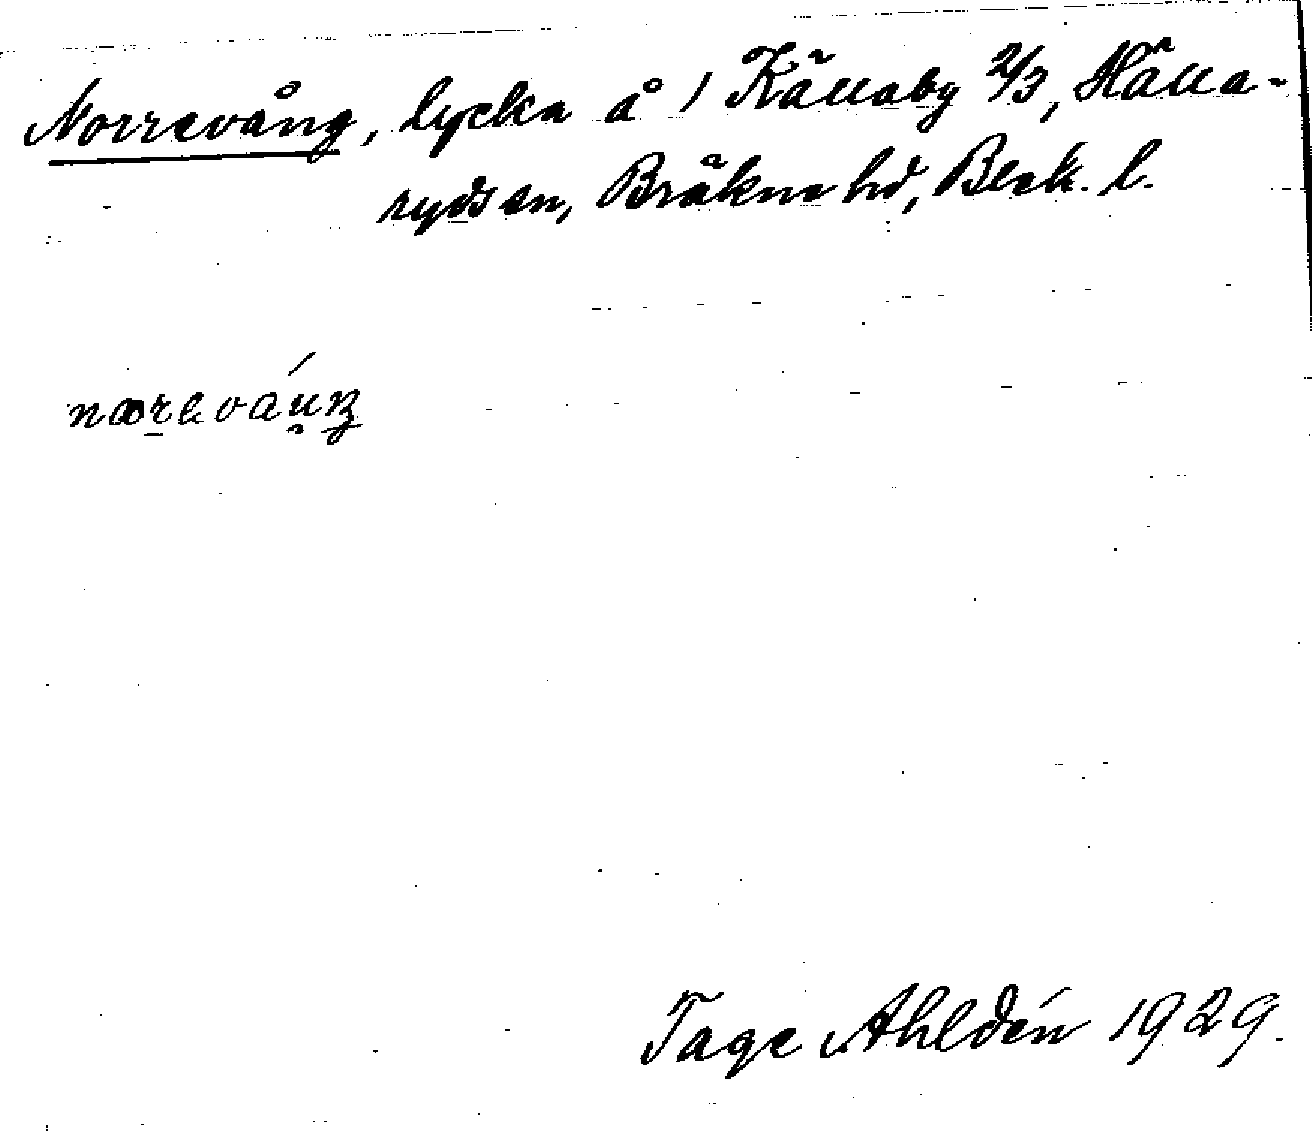 Norrevång, lycka å 1 Källaby 2/3, Hälla-
ryds sn, Bräkne hd, Blek. l.
Tage Ahldén 1929.